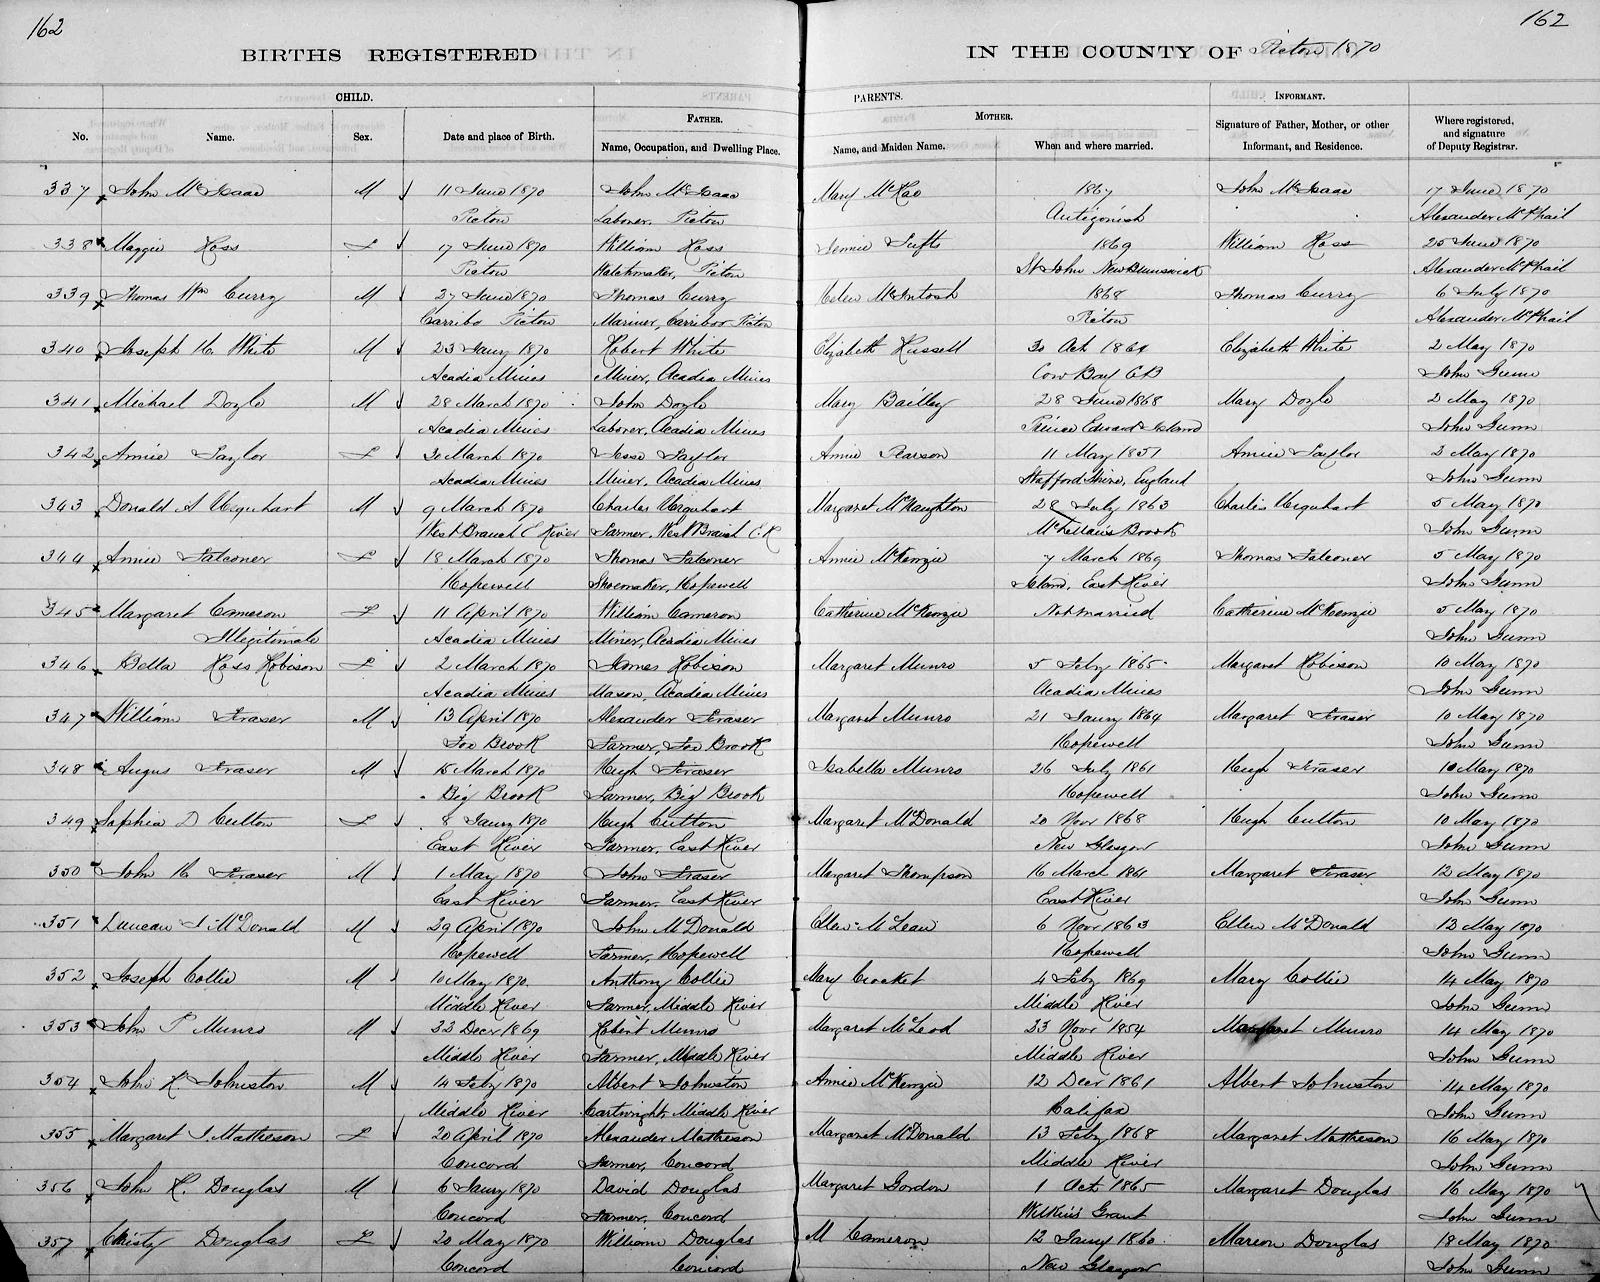 162
162
BIRTHS REGISTERED
IN THE COUNTY OF Picton 1870
CHILD.
PARENTS.
INFORMANT.
FATHER.
MOTHER.
No.
Name.
Sex.
Date and place of Birth.
Name, Occupation, and Dwelling Place.
Name, and Maiden Name.
When and where married.
Signature of Father, Mother, or other Informant, and Residence.
Where registered, and signature of Deputy Registrar.
337 John McIsaac M 11 June 1870 John McIsaac Mary McKao 1867 John McIsaac 17 June 1870
Picton Laborer, Picton Antigonish Alexander McPhail
338 Maggie Ross F 17 June 1870 William Ross Jennie Tufts 1869 William Ross 25 June 1870
Picton Watchmaker, Picton St John New Brunswick Alexander McPhail
339 Thomas Wm Curry M 27 June 1870 Thomas Curry Helen McIntosh 1868 Thomas Curry 6 July 1870
Carribo Picton Mariner, Carriboo Picton Picton Alexander McPhail
340 Joseph H. White M 23 Jany 1870 Robert White Elizabeth Russell 30 Oct 1864 Elizabeth White 2 May 1870
Acadia Mines Miner, Acadia Mines Cow Bay CB John Gunn
341 Michael Doyle M 28 March 1870 John Doyle Mary Bailley 28 June 1868 Mary Doyle 2 May 1870
Acadia Mines Laborer, Acadia Mines Prince Edward Island John Gunn
342 Annie Taylor F 30 March 1870 Jesse Taylor Annie Pearson 11 May 1851 Annie Taylor 2 May 1870
Acadia Mines Miner, Acadia Mines Staffordshire, England John Gunn
343 Donald A Urquhart M 9 March 1870 Charles Urquhart Margaret McNaughton 28 July 1863 Charles Urquhart 5 May 1870
West Branch E River Farmer, West Branch E. R McLellan's Brook John Gunn
344 Annie Falconer F 18 March 1870 Thomas Falconer Annie McKenzie 7 March 1869 Thomas Falconer 5 May 1870
Hopewell Shoemaker, Hopewell Island, East River John Gunn
345 Margaret Cameron F 11 April 1870 William Cameron Catherine McKenzie Not married Catherine McKenzie 5 May 1870
Illegitimate Acadia Mines Miner, Acadia Mines John Gunn
346 Bella Ross Robison F 2 March 1870 James Robison Margaret Munro 5 Feby 1865 Margaret Robison 10 May 1870
Acadia Mines Mason, Acadia Mines Acadia Mines John Gunn
347 William Fraser M 13 April 1870 Alexander Fraser Margaret Munro 21 Jany 1864 Margaret Fraser 10 May 1870
Fox Brook Farmer, Fox Brook Hopewell John Gunn
348 Angus Fraser M 15 March 1870 Hugh Fraser Isabella Munro 26 July 1861 Hugh Fraser 10 May 1870
Big Brook Farmer, Big Brook Hopewell John Gunn
349 Sophia D Culton F 8 Jany 1870 Hugh Culton Margaret McDonald 20 Nov 1868 Hugh Culton 10 May 1870
East River Farmer, East River New Glasgow John Gunn
350 John H Fraser M 1 May 1870 John Fraser Margaret Thompson 16 March 1861 Margaret Fraser 12 May 1870
East River Farmer, East River East River John Gunn
351 Duncan J. McDonald M 29 April 1870 John McDonald Ellen McLean 6 Nov 1863 Ellen McDonald 12 May 1870
Hopewell Farmer, Hopewell Hopewell John Gunn
352 Joseph Collie M 10 May 1870 Anthony Collie Mary Crocket 4 Feby 1869 Mary Collie 14 May 1870
Middle River Farmer, Middle River Middle River John Gunn
353 John P Munro M 22 Decr 1869 Robert Munro Margaret McLeod 23 Novr 1854 Margaret Munro 14 May 1870
Middle River Farmer, Middle River Middle River John Gunn
354 John K. Johnston M 14 Feby 1870 Albert Johnston Annie McKenzie 12 Decr 1861 Albert Johnston 14 May 1870
Middle River Cartwright, Middle River Halifax John Gunn
355 Margaret J Matheson F 20 April 1870 Alexander Matheson Margaret McDonald 13 Feby 1868 Margaret Matheson 16 May 1870
Concord Farmer, Concord Middle River John Gunn
356 John R. Douglas M 6 Jany 1870 David Douglas Margaret Gordon 1 Oct 1865 Margaret Douglas 16 May 1870
Concord Farmer, Concord Wilkins Grant John Gunn
357 Christy Douglas F 20 May 1870 William Douglas M Cameron 12 Jany 1860 Marion Douglas 18 May 1870
Concord Concord New Glasgow John Gunn